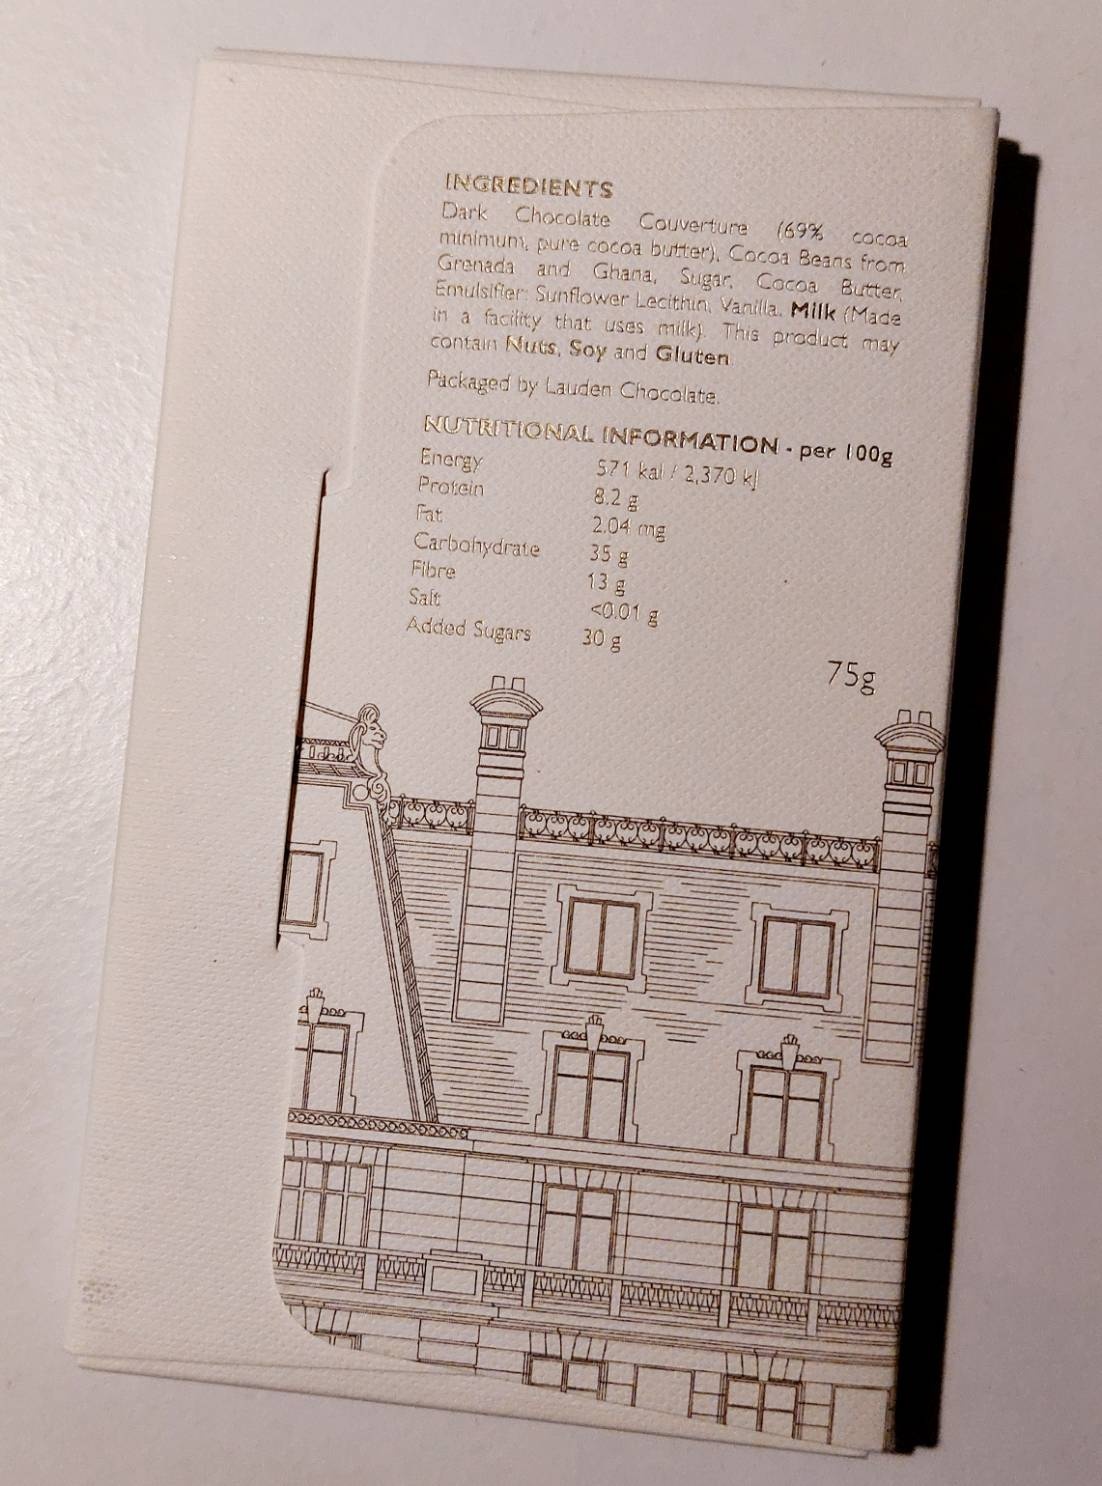 INGREDIENTS
Dark Chocolate Couverture (69% cocoa
minimum, pure cocoa butter), Cocoa Beans from
Grenada and Ghana, Sugar, Cocoa Butter,
Emulsifier: Sunflower Lecithin, Vanilla. Milk (Made
in a facility that uses milk). This product may
contain Nuts, Soy and Gluten
Packaged by Lauden Chocolate.
NUTRITIONAL INFORMATION - per 100g
Energy 571 kal / 2,370 kJ
Protein 8.2 g
Fat 2.04 mg
Carbohydrate 35 g
Fibre 13 g
Salt <0.01 g
Added Sugars 30 g
75g